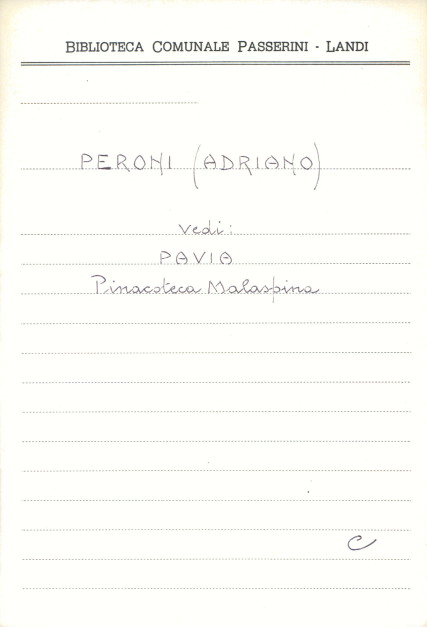 BIBLIOTECA COMUNALE PASSERINI - LANDI
PERONI (ADRIANO)
vedi:
PAVIA
Pinacoteca Malaspina
C